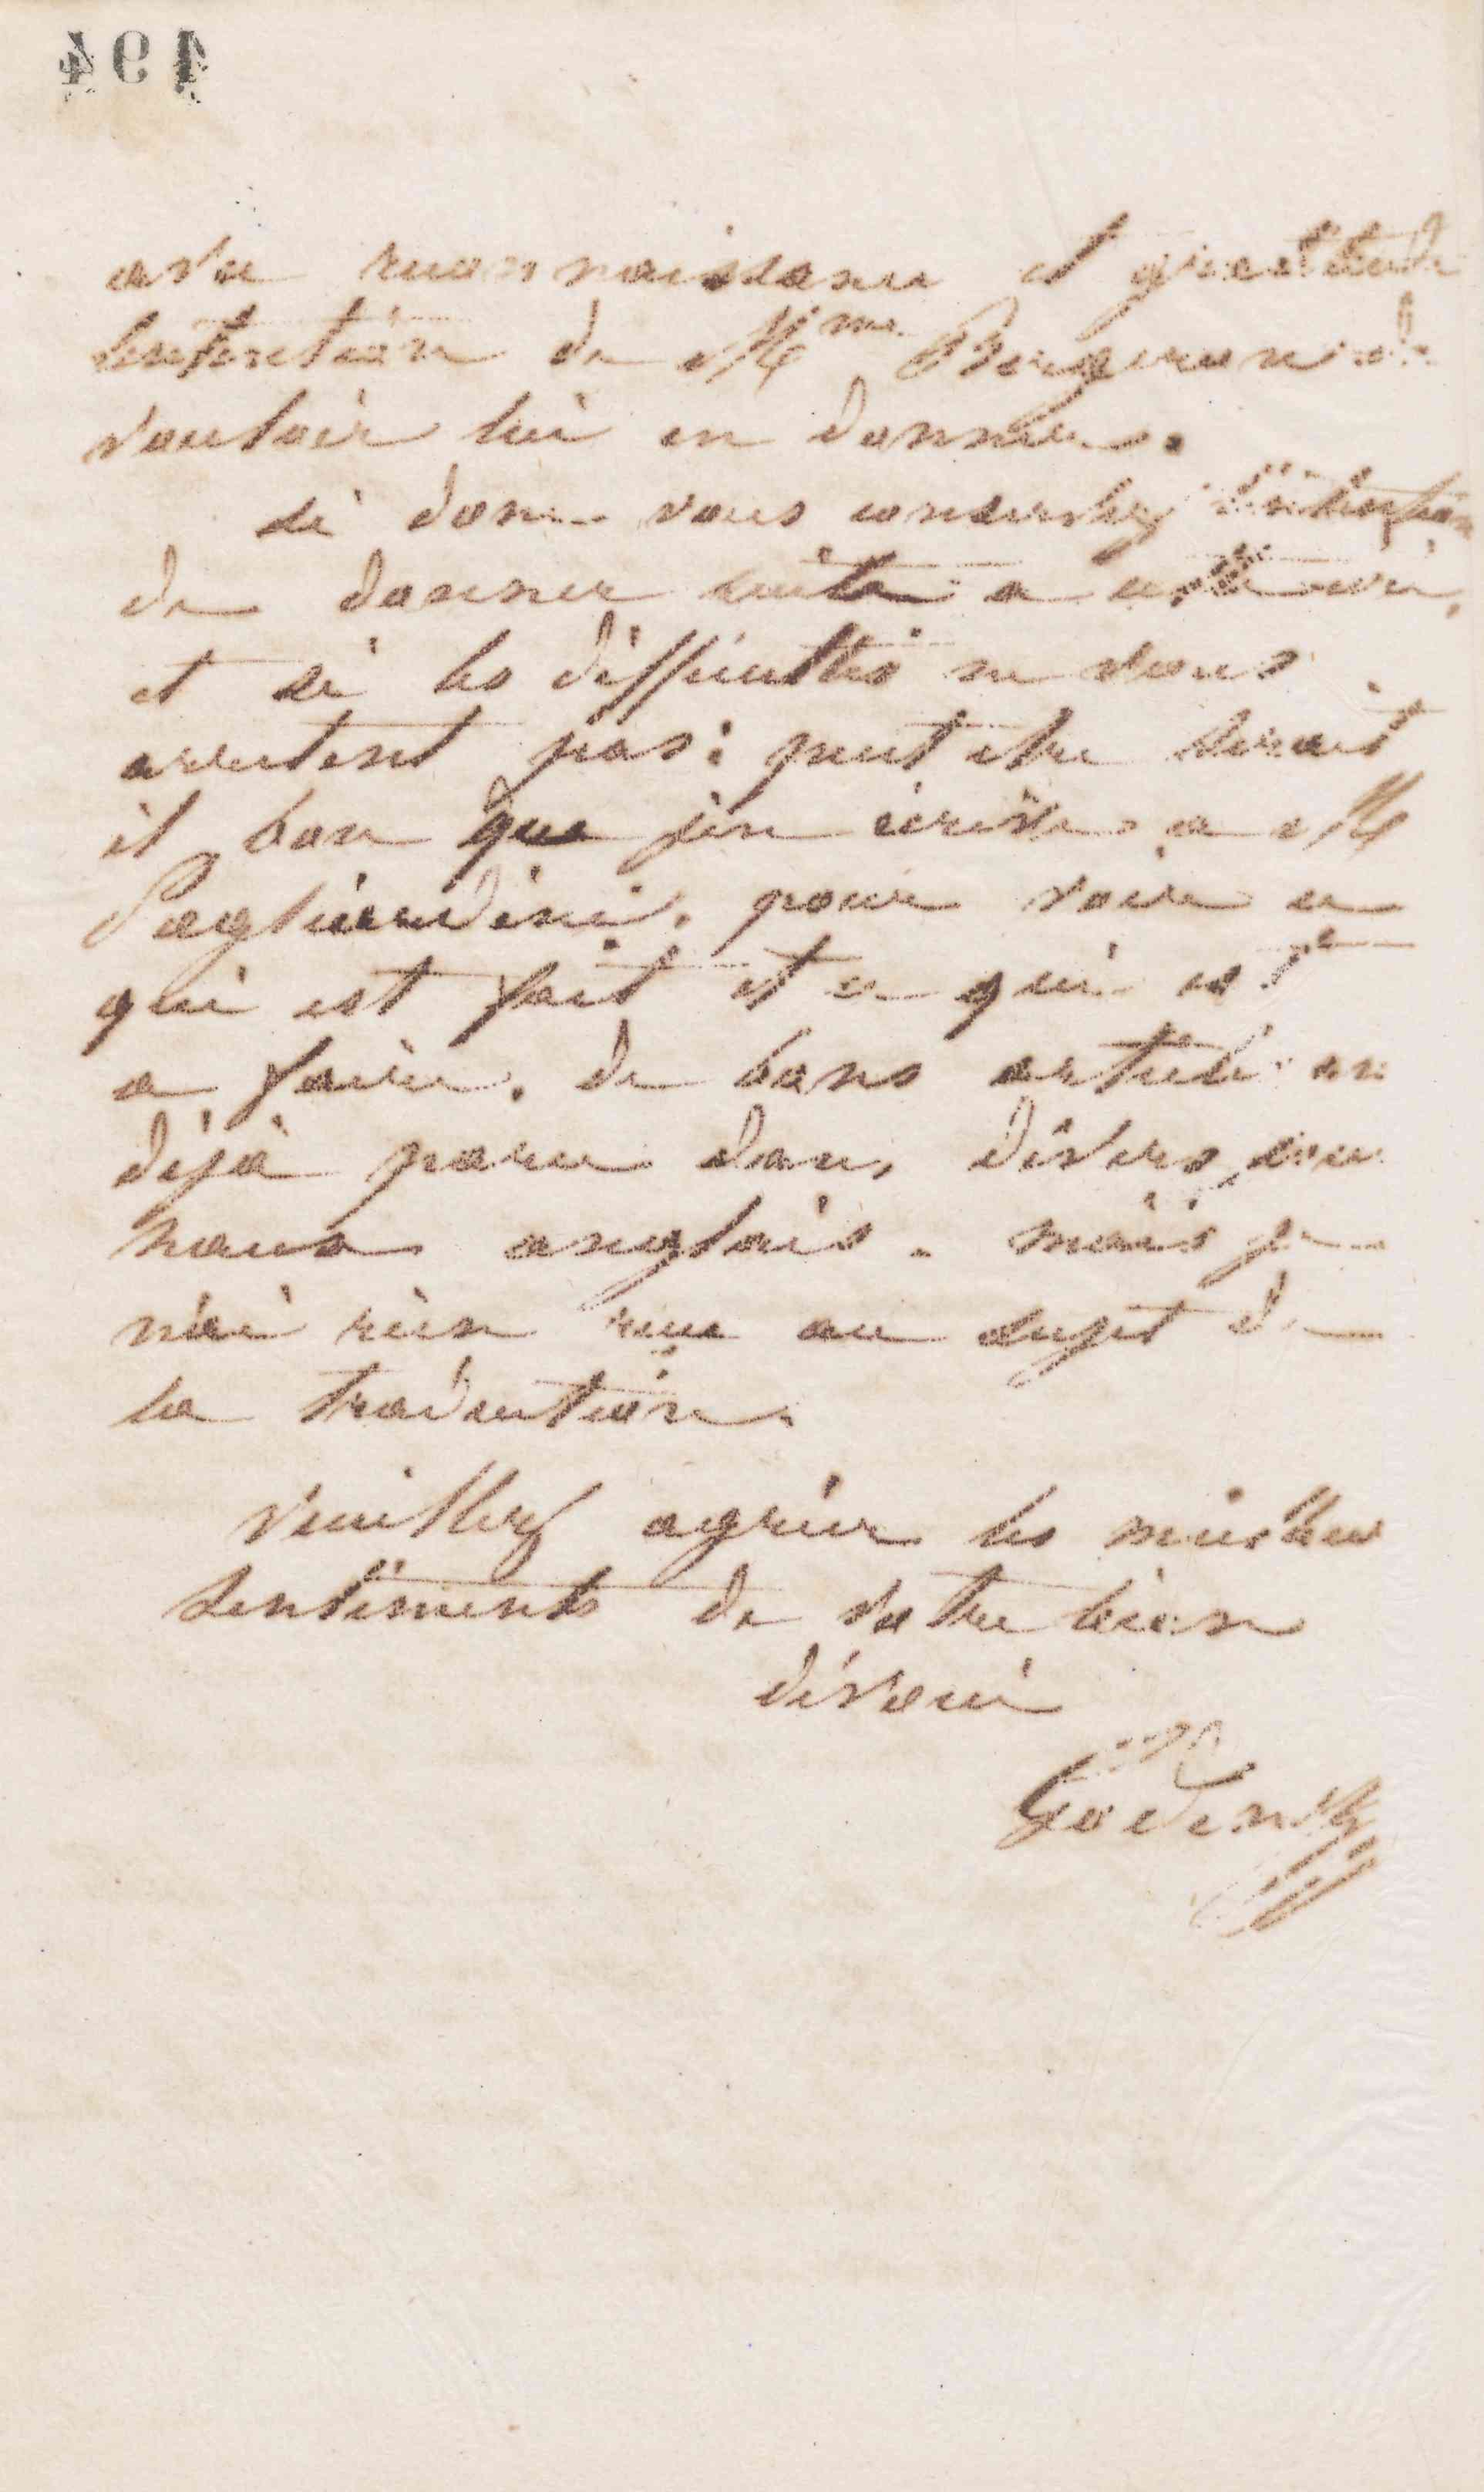 494
avec reconnaissance et gratitude
l'intention de Mme Bergeron de
vouloir lui en donner.
si donc vous conservez l'intention
de donner suite a cette
et si les difficultés ne vous
arretent pas: peut etre serait
il bon que j'en écrive a M
Pagliardini. pour voir ce
qui est fait et ce qui est
a faire. de bons articles on
déjà paru dans divers jour
naux anglais. mais je
n'ai rien reçu au sujet de
la traduction.
veuillez agréer les meilleur
sentiments de votre bien
dévoué
Godin